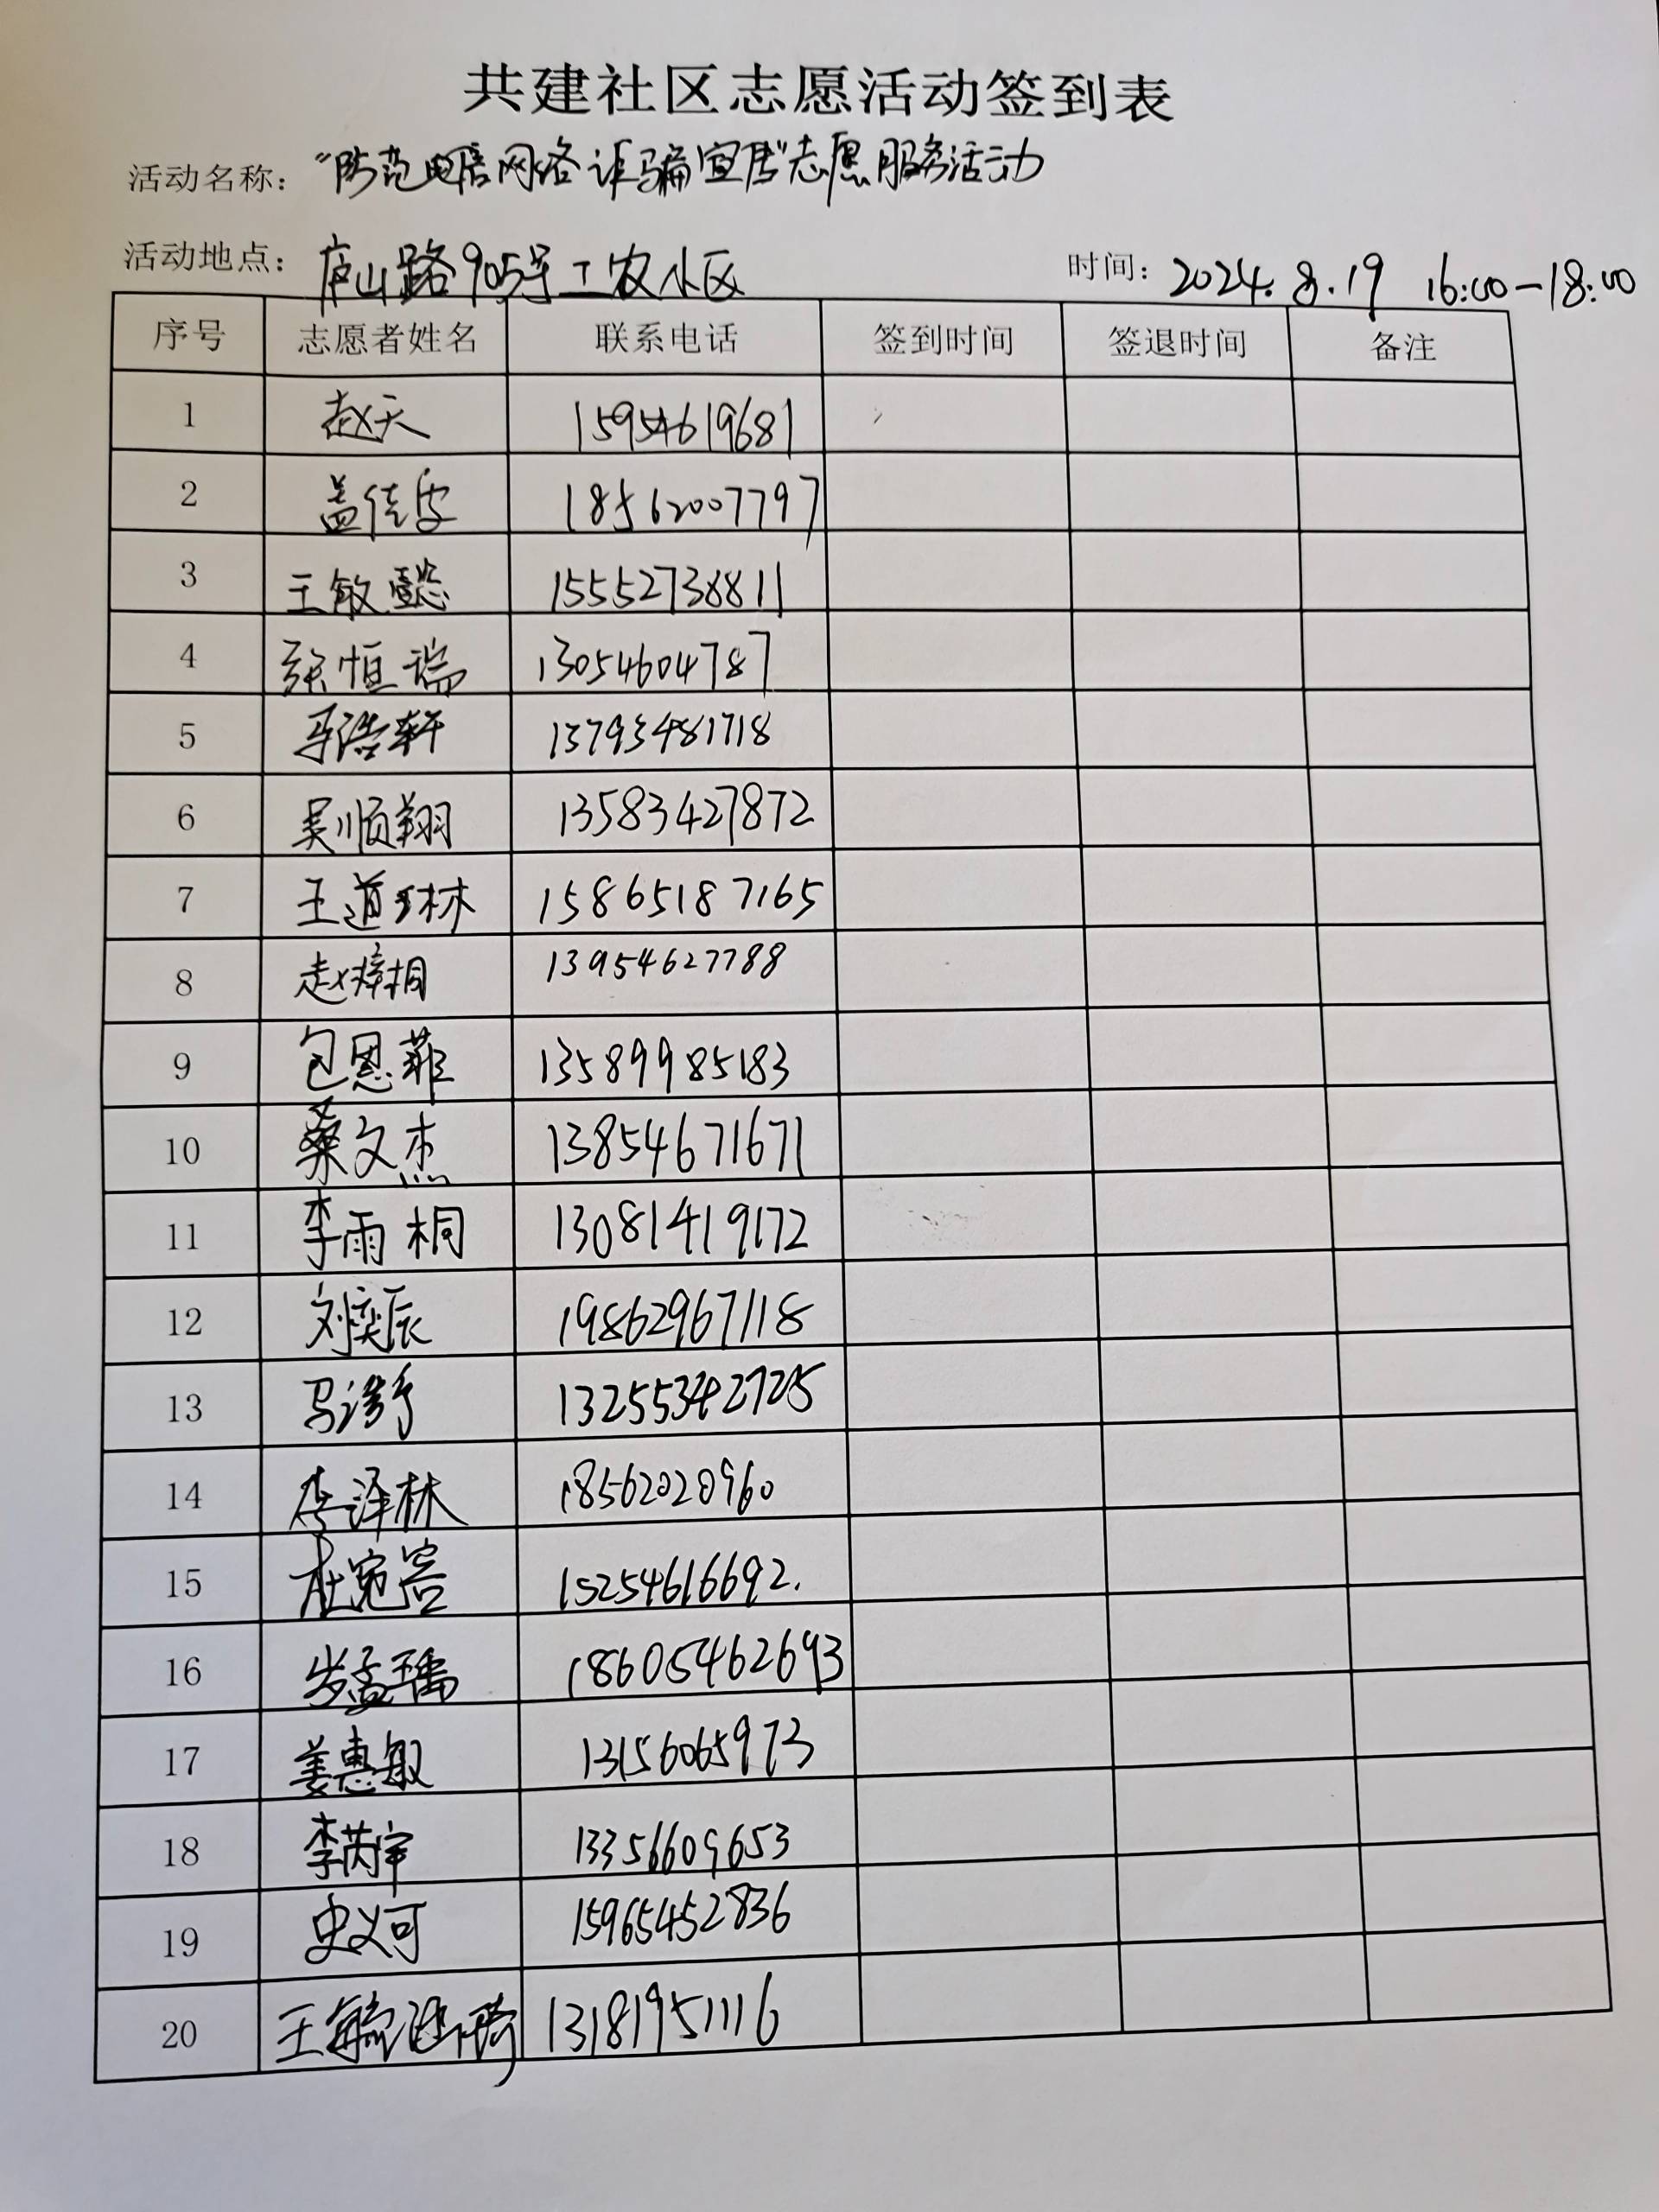 共建社区志愿活动签到表
活动名称： "防范电信网络诈骗宣传"志愿服务活动
活动地点： 庐山路905号工农小区 时间： 2024.8.19 16:00-18:00
序号 志愿者姓名 联系电话 签到时间 签退时间 备注
1 赵天 15954619681
2 盖佳 18562007797
3 王敏懿 15552738811
4 张恒瑞 13054604787
5 马浩轩 13793481718
6 吴顺翔 13583427872
7 王道琳 15865187165
8 赵梓桐 13954627788
9 包恩菲 13589985183
10 桑文杰 13854671671
11 李雨桐 13081419172
12 刘奕辰 19862967118
13 马浩 13255342725
14 李泽林 18562020960
15 杜宛容 15254616692.
16 岁孟瑀 18605462693
17 姜惠敏 13156065973
18 李芮宇 13356609653
19 史义可 15965452836
20 王 13181951116